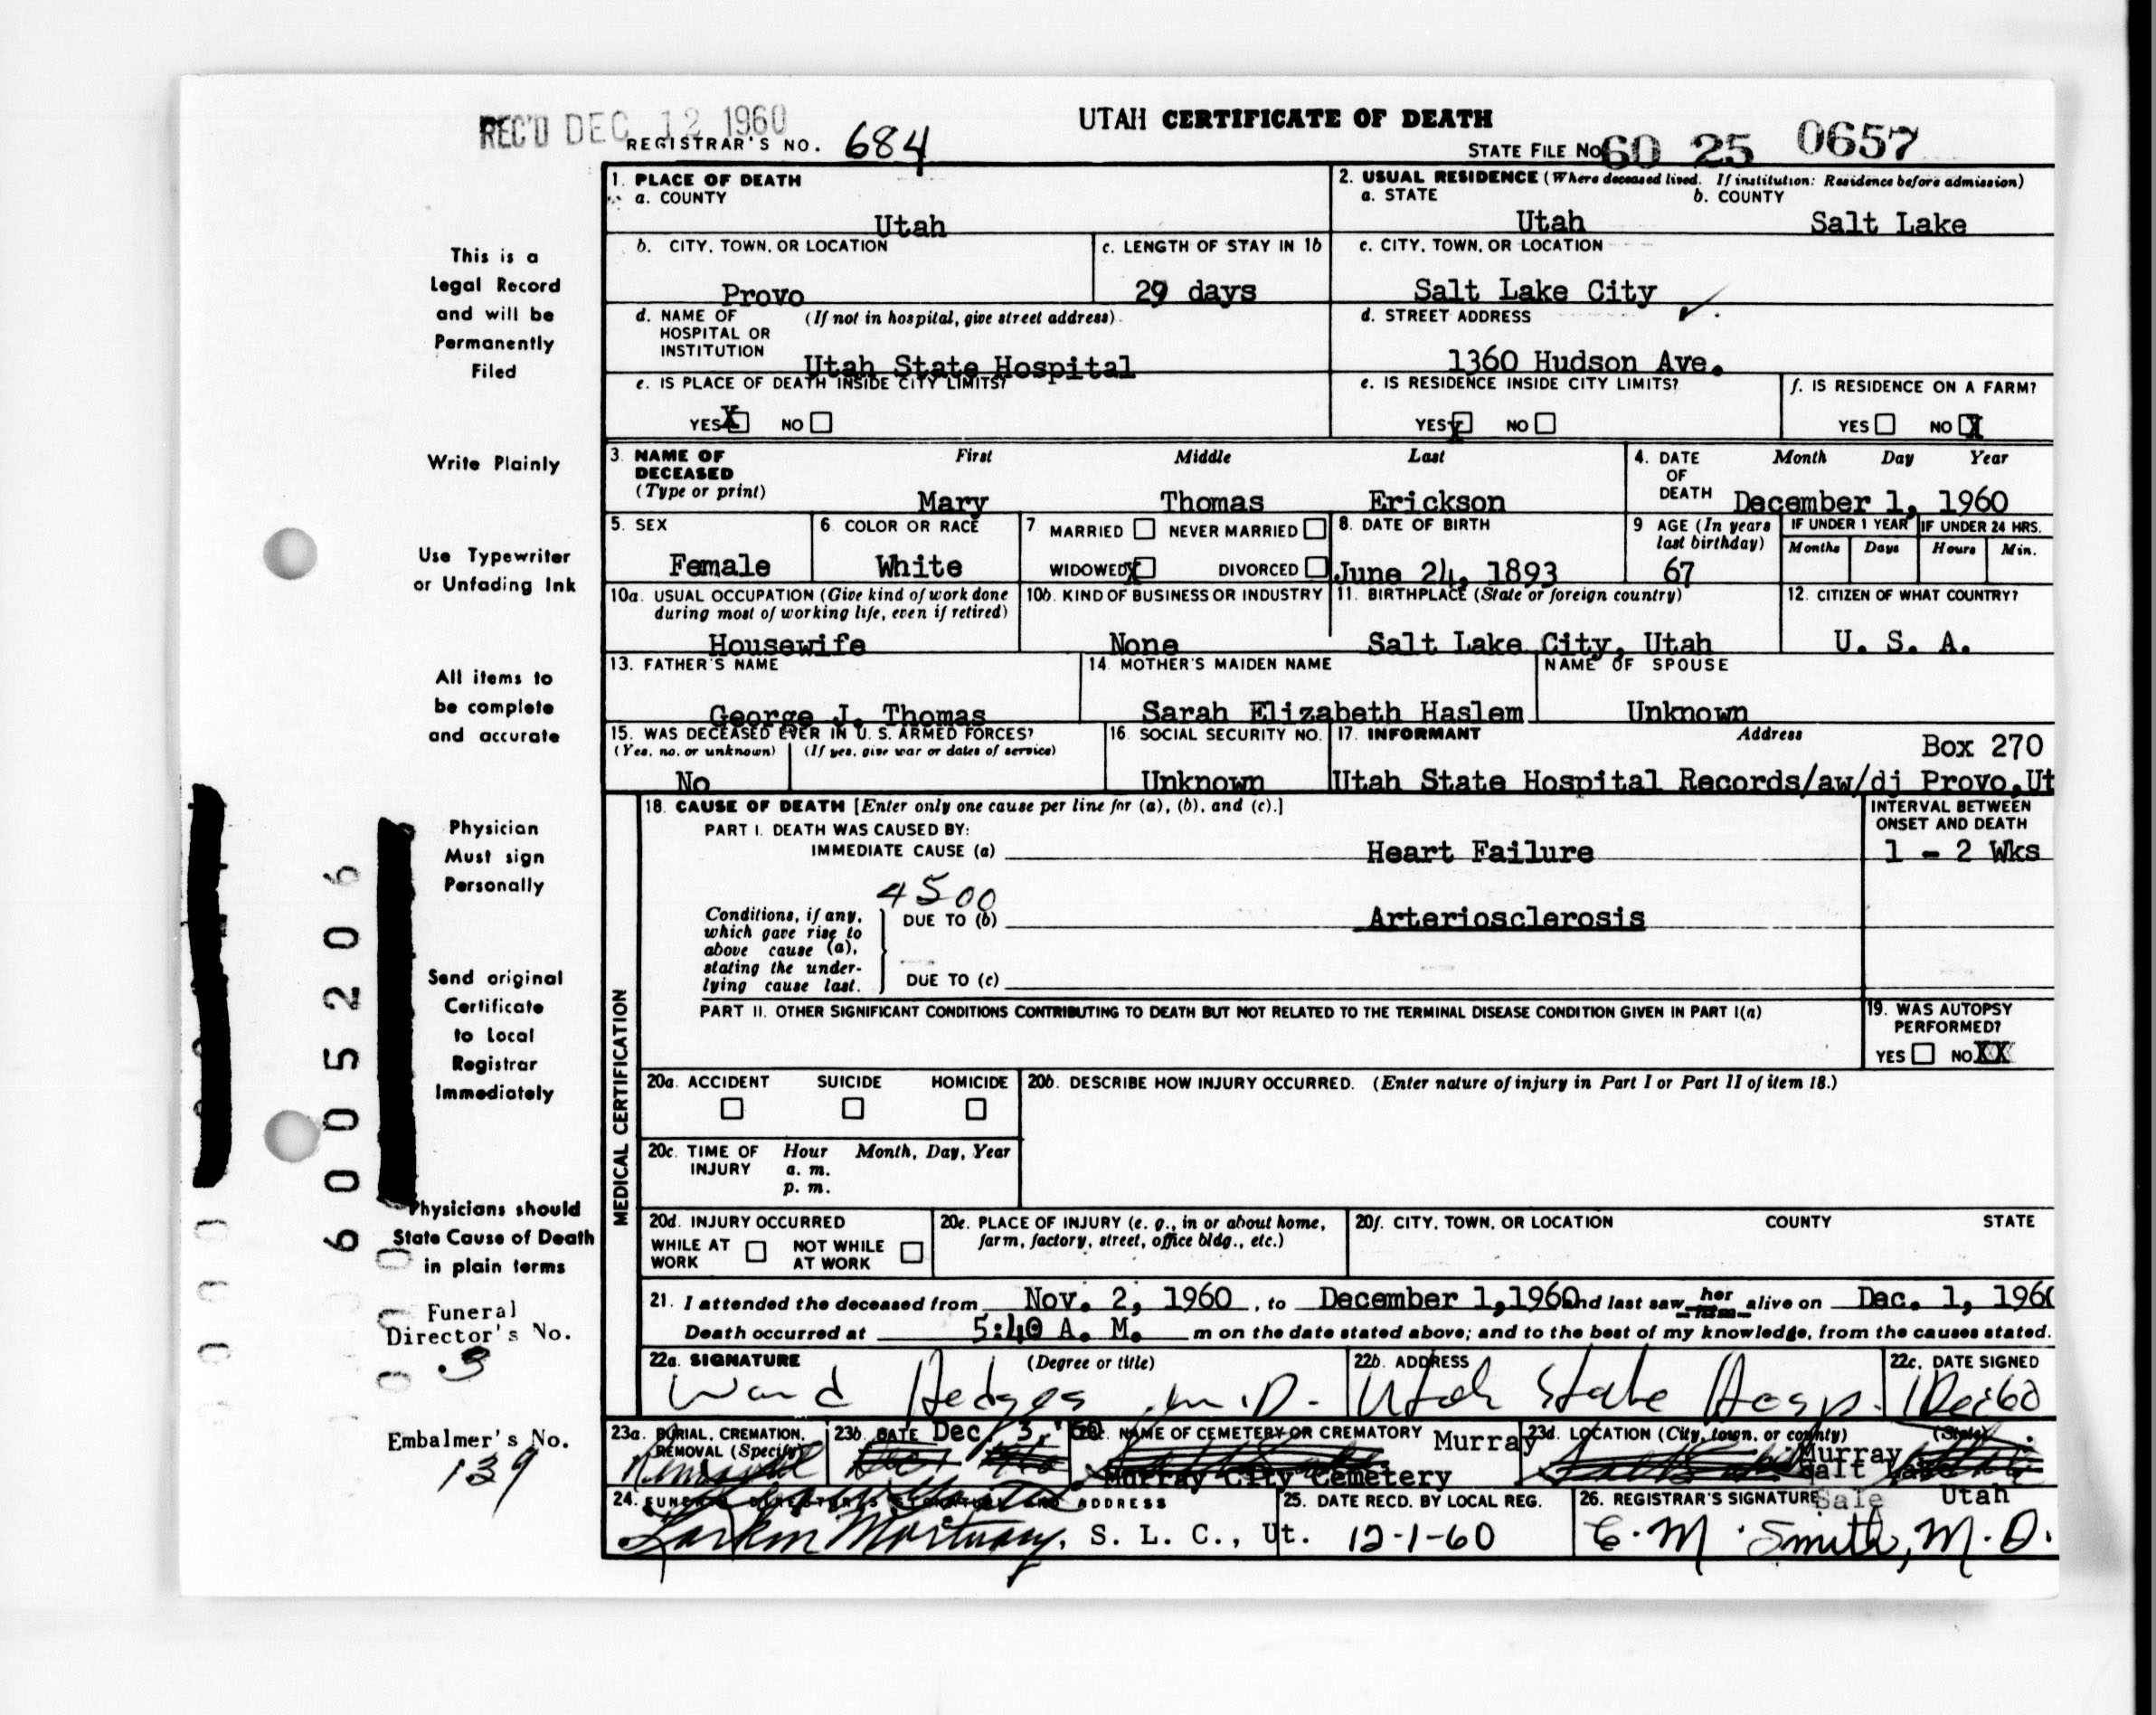 REC'D DEC 12 1960
UTAH CERTIFICATE OF DEATH
REGISTRAR'S NO. 684
STATE FILE NO. 60 25 0657
1. PLACE OF DEATH
a. COUNTY
Utah
2. USUAL RESIDENCE (Where deceased lived. If institution: Residence before admission)
a. STATE b. COUNTY
Utah Salt Lake
b. CITY, TOWN, OR LOCATION
Provo
c. LENGTH OF STAY IN 1b
29 days
c. CITY, TOWN, OR LOCATION
Salt Lake City
d. NAME OF HOSPITAL OR INSTITUTION (If not in hospital, give street address)
Utah State Hospital
d. STREET ADDRESS
1360 Hudson Ave.
e. IS PLACE OF DEATH INSIDE CITY LIMITS?
YES X NO
e. IS RESIDENCE INSIDE CITY LIMITS?
YES X NO
f. IS RESIDENCE ON A FARM?
YES NO X
3. NAME OF DECEASED (Type or print)
First Middle Last
Mary Thomas Erickson
4. DATE OF DEATH Month Day Year
December 1, 1960
5. SEX
Female
6. COLOR OR RACE
White
7 MARRIED NEVER MARRIED
WIDOWED X DIVORCED
8. DATE OF BIRTH
June 24, 1893
9 AGE (In years last birthday)
67
IF UNDER 1 YEAR IF UNDER 24 HRS.
Months Days Hours Min.
10a. USUAL OCCUPATION (Give kind of work done during most of working life, even if retired)
Housewife
10b. KIND OF BUSINESS OR INDUSTRY
None
11. BIRTHPLACE (State or foreign country)
Salt Lake City, Utah
12. CITIZEN OF WHAT COUNTRY?
U. S. A.
13. FATHER'S NAME
George J. Thomas
14. MOTHER'S MAIDEN NAME
Sarah Elizabeth Haslem
NAME OF SPOUSE
Unknown
15. WAS DECEASED EVER IN U. S. ARMED FORCES?
(Yes, no, or unknown) (If yes, give war or dates of service)
No
16. SOCIAL SECURITY NO.
Unknown
17. INFORMANT Address
Box 270
Utah State Hospital Records/aw/dj Provo,Ut
18. CAUSE OF DEATH [Enter only one cause per line for (a), (b), and (c).]
PART I. DEATH WAS CAUSED BY:
IMMEDIATE CAUSE (a) Heart Failure
INTERVAL BETWEEN ONSET AND DEATH
1 - 2 Wks
4500
Conditions, if any, which gave rise to above cause (a), stating the underlying cause last.
DUE TO (b) Arteriosclerosis
DUE TO (c)
PART II. OTHER SIGNIFICANT CONDITIONS CONTRIBUTING TO DEATH BUT NOT RELATED TO THE TERMINAL DISEASE CONDITION GIVEN IN PART I(a)
19. WAS AUTOPSY PERFORMED?
YES NO XX
MEDICAL CERTIFICATION
20a. ACCIDENT SUICIDE HOMICIDE
20b. DESCRIBE HOW INJURY OCCURRED. (Enter nature of injury in Part I or Part II of item 18.)
20c. TIME OF INJURY Hour Month, Day, Year
a. m.
p. m.
20d. INJURY OCCURRED
WHILE AT WORK NOT WHILE AT WORK
20e. PLACE OF INJURY (e. g., in or about home, farm, factory, street, office bldg., etc.)
20f. CITY, TOWN, OR LOCATION COUNTY STATE
21. I attended the deceased from Nov. 2, 1960, to December 1,1960 and last saw her him alive on Dec. 1, 1960
Death occurred at 5:40 A. M. m on the date stated above; and to the best of my knowledge, from the causes stated.
22a. SIGNATURE (Degree or title)
Ward Hedges M.D.
22b. ADDRESS
Utah State Hosp.
22c. DATE SIGNED
1 Dec 60
23a. BURIAL, CREMATION, REMOVAL (Specify)
Removal
23b. DATE Dec. 3, '60
23c. NAME OF CEMETERY OR CREMATORY
Murray
Murray City Cemetery
23d. LOCATION (City, town, or county) (State)
Murray
Salt Lake
Utah
24. FUNERAL DIRECTOR'S SIGNATURE AND ADDRESS
Larkin Mortuary, S. L. C., Ut.
25. DATE RECD. BY LOCAL REG.
12-1-60
26. REGISTRAR'S SIGNATURE
E. M. Smith, M. D.
This is a
Legal Record
and will be
Permanently
Filed
Write Plainly
Use Typewriter
or Unfading Ink
All items to
be complete
and accurate
Physician
Must sign
Personally
Send original
Certificate
to Local
Registrar
Immediately
Physicians should
State Cause of Death
in plain terms
Funeral
Director's No.
3
Embalmer's No.
139
6005206